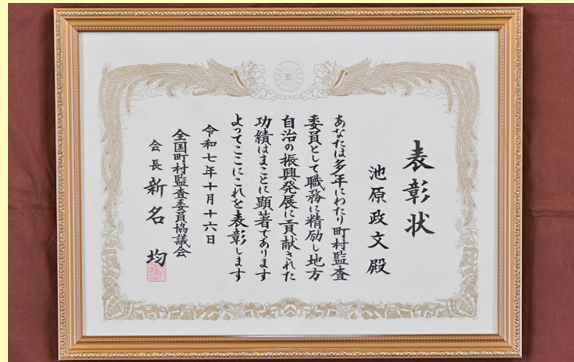 表彰状
池原政文 殿
あなたは多年にわたり町村監査
委員として職務に精励し地方
自治の振興発展に貢献された
功績はまことに顕著であります
よってここにこれを表彰します
令和七年十月十六日
全国町村監査委員協議会
会長 新名 均